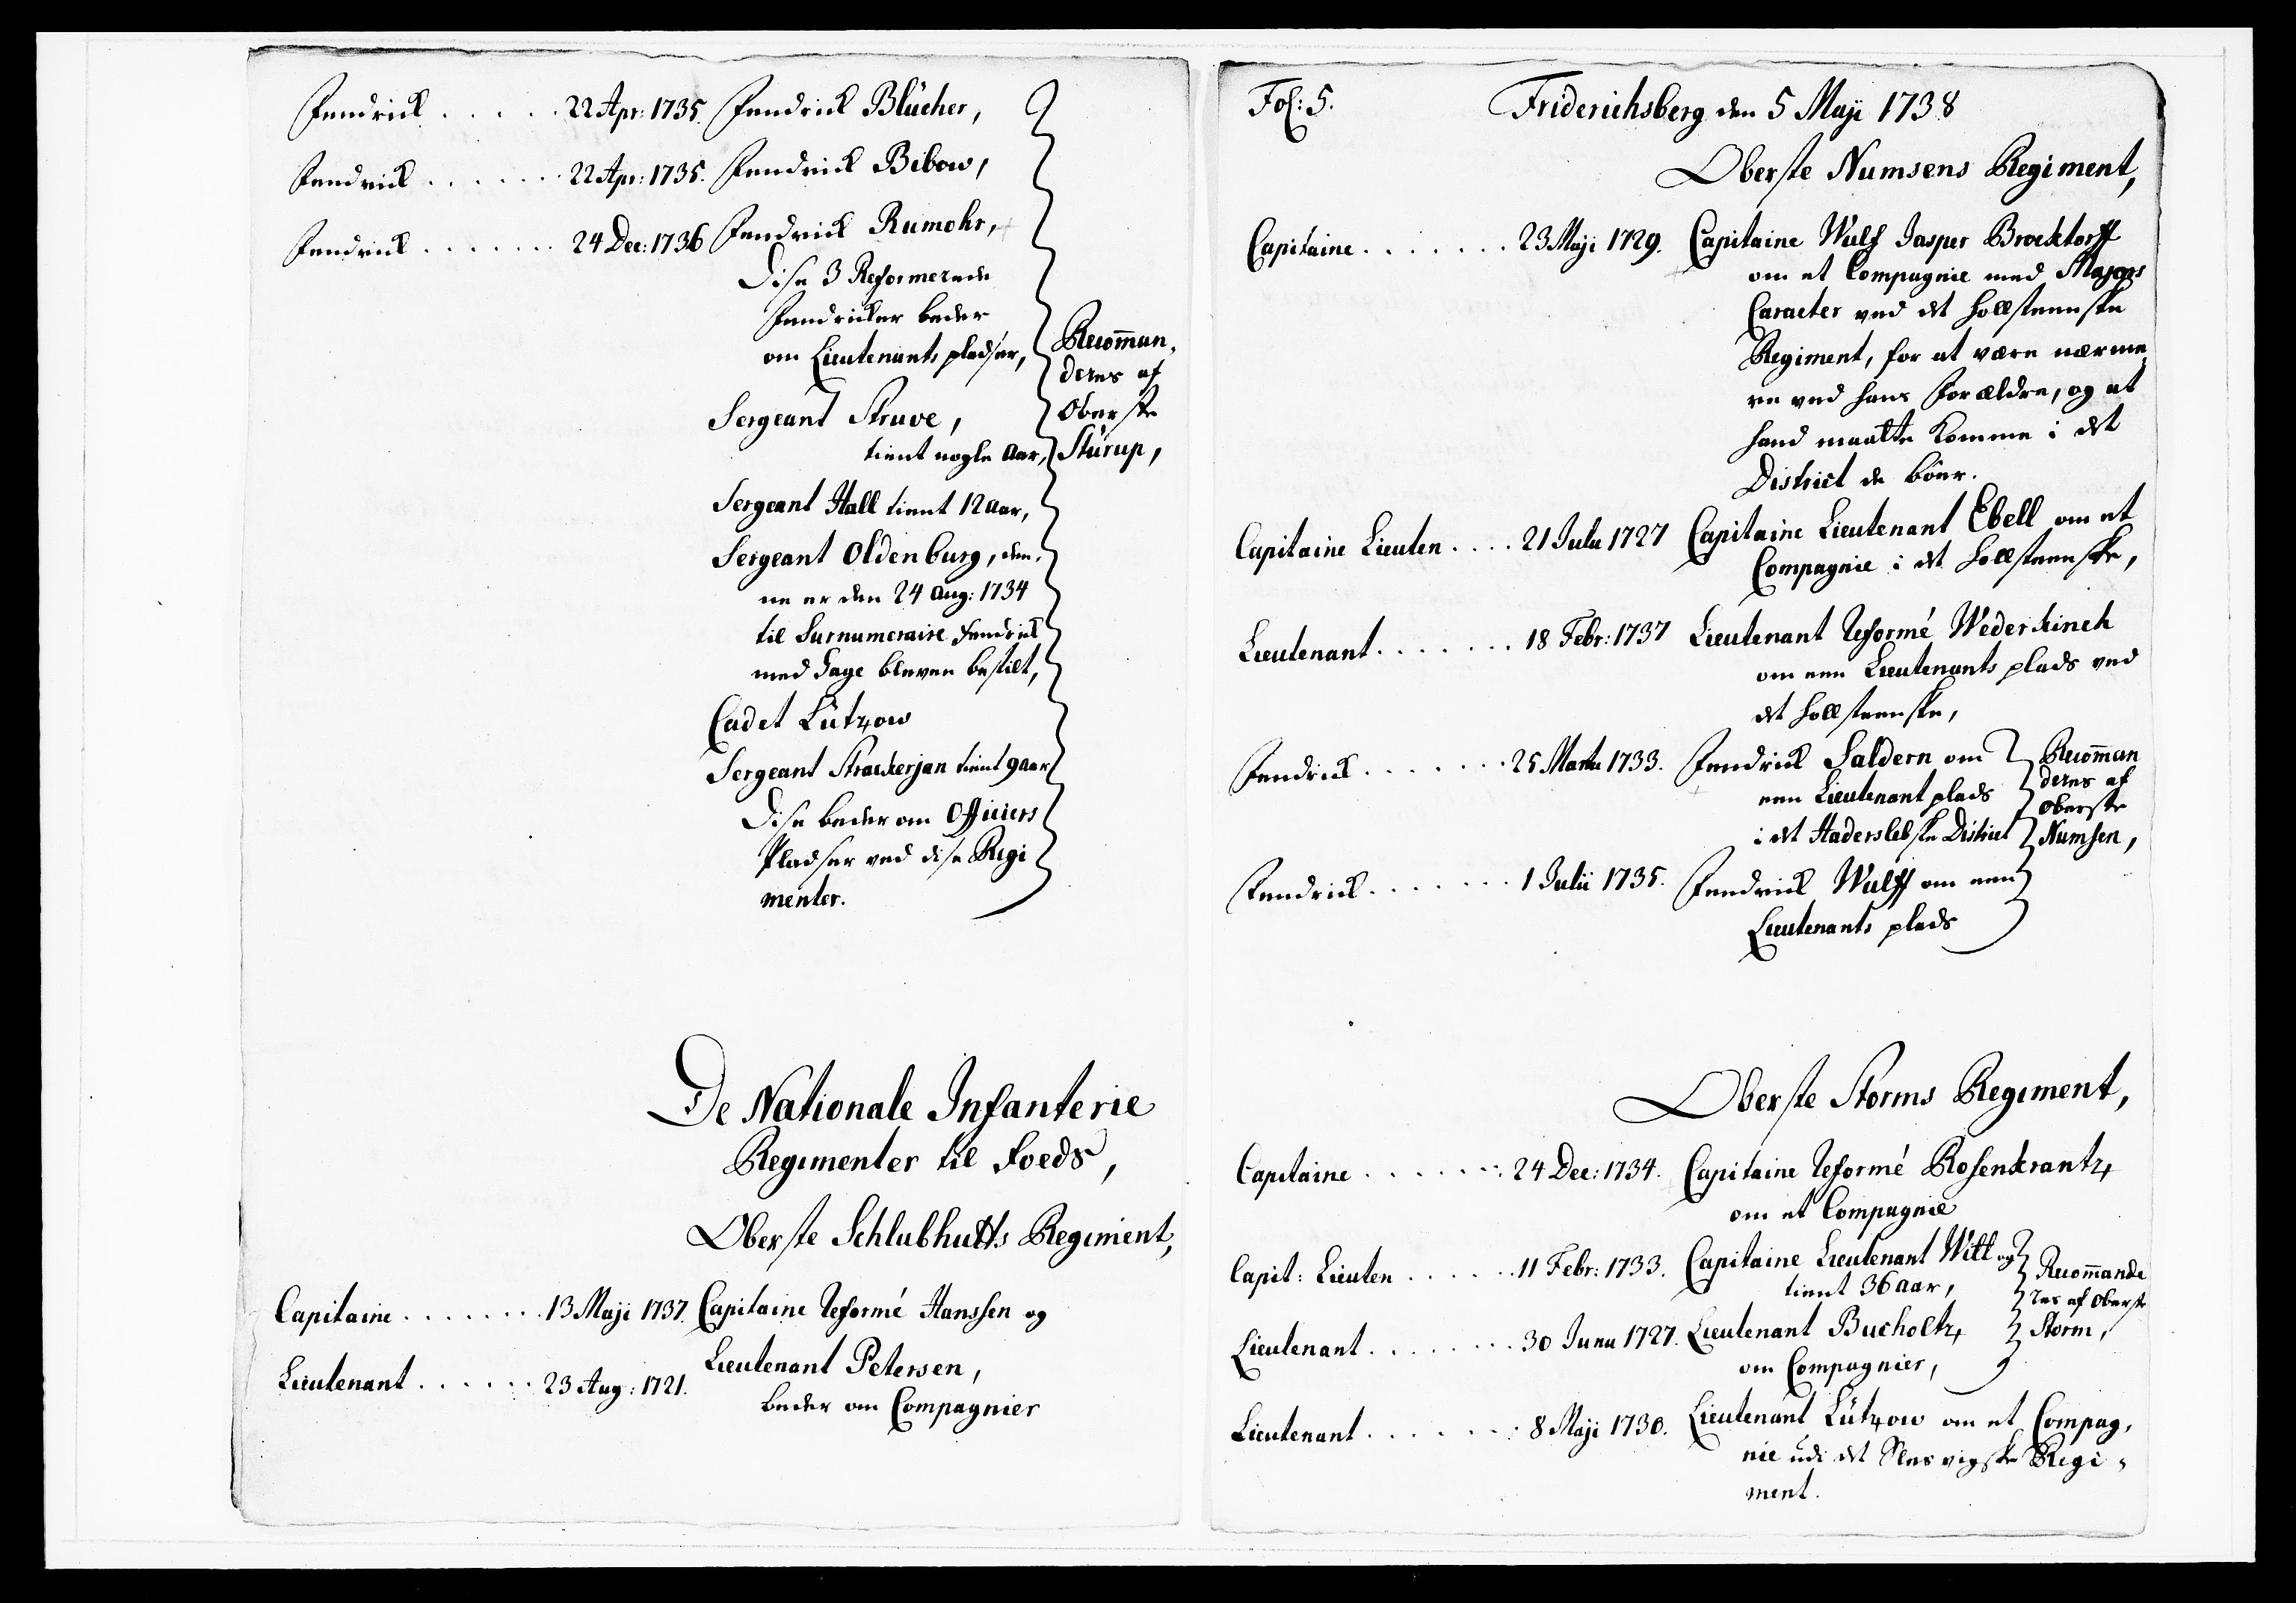 Fendrick . . . . . 22 Apr: 1735. Fendrick Blücher,
Fendrick . . . . . . 22 Apr: 1735. Fendrick Bibow,
Fendrick . . . . . . 24 Dec: 1736 Fendrick Rumohr,
Dise 3 Reformerede
Fendricker beder
om Lieutenants pladser,
Sergeant Struve,
tient nogle Aar,
Sergeant Hall tient 12 Aar,
Sergeant Oldenburg, den-
ne er den 24 Aug: 1734
til Surnumeraire Fendrick
med Gage bleven bestilt,
Cadet Lützow
Sergeant Strackerjan tient 9 aar
Dise beder om Officiers
Pladser ved dise Regi
menter.
Recom̄an-
deres af
Oberste
Stürup,
De Nationale Infanterie
Regimenter til Foeds,
Oberste Schlubhutts Regiment,
Capitaine . . . . . . . 13 Maji 1737. Capitaine Reformé Hanssen og
Lieutenant . . . . . . 23 Aug: 1721. Lieutenant Petersen,
beder om Compagnier
Fol: 5. Friderichsberg den 5 Maji 1738
Oberste Numsens Regiment,
Capitaine . . . . . . . 23 Maji 1729. Capitaine Wulf Jasper Brocktorff
om et Compagnie med Majors
Caracter ved det Hollsteenske
Regiment, for at være nærme-
re ved hans Forældre, og at
hand maatte komme i det
District de böer.
Capitaine Lieuten . . . . 21 Julii 1727 Capitaine Lieutenant Ebell om et
Compagnie i det Hollsteenske,
Lieutenant . . . . . . . 18 Febr: 1737 Lieutenant Reformé Wederkinch
om een Lieutenants plads ved
det Hollsteenske,
Fendrick . . . . . . . 25 Martii 1733. Fendrick Saldern om
een Lieutenant plads
i det Haderslebske District
Fendrick . . . . . . . 1 Julii 1735. Fendrick Wulff om een
Lieutenants plads
Recom̄an
deres af
Oberste
Numsen,
Oberste Storms Regiment,
Capitaine . . . . . . . 24 Dec: 1734. Capitaine Reformé Rosenkrantz
om et Compagnie
Capit: Lieuten . . . . . . 11 Febr: 1733. Capitaine Lieutenant Witt og
tient 36 aar,
Lieutenant . . . . . . . 30 Junii 1727. Lieutenant Bucholtz
om Compagnier,
Recom̄ande
res af Oberste
Storm,
Lieutenant . . . . . . . 8 Maji 1730. Lieutenant Lützow om et Compag-
nie udi det Slesvigske Regi-
ment.